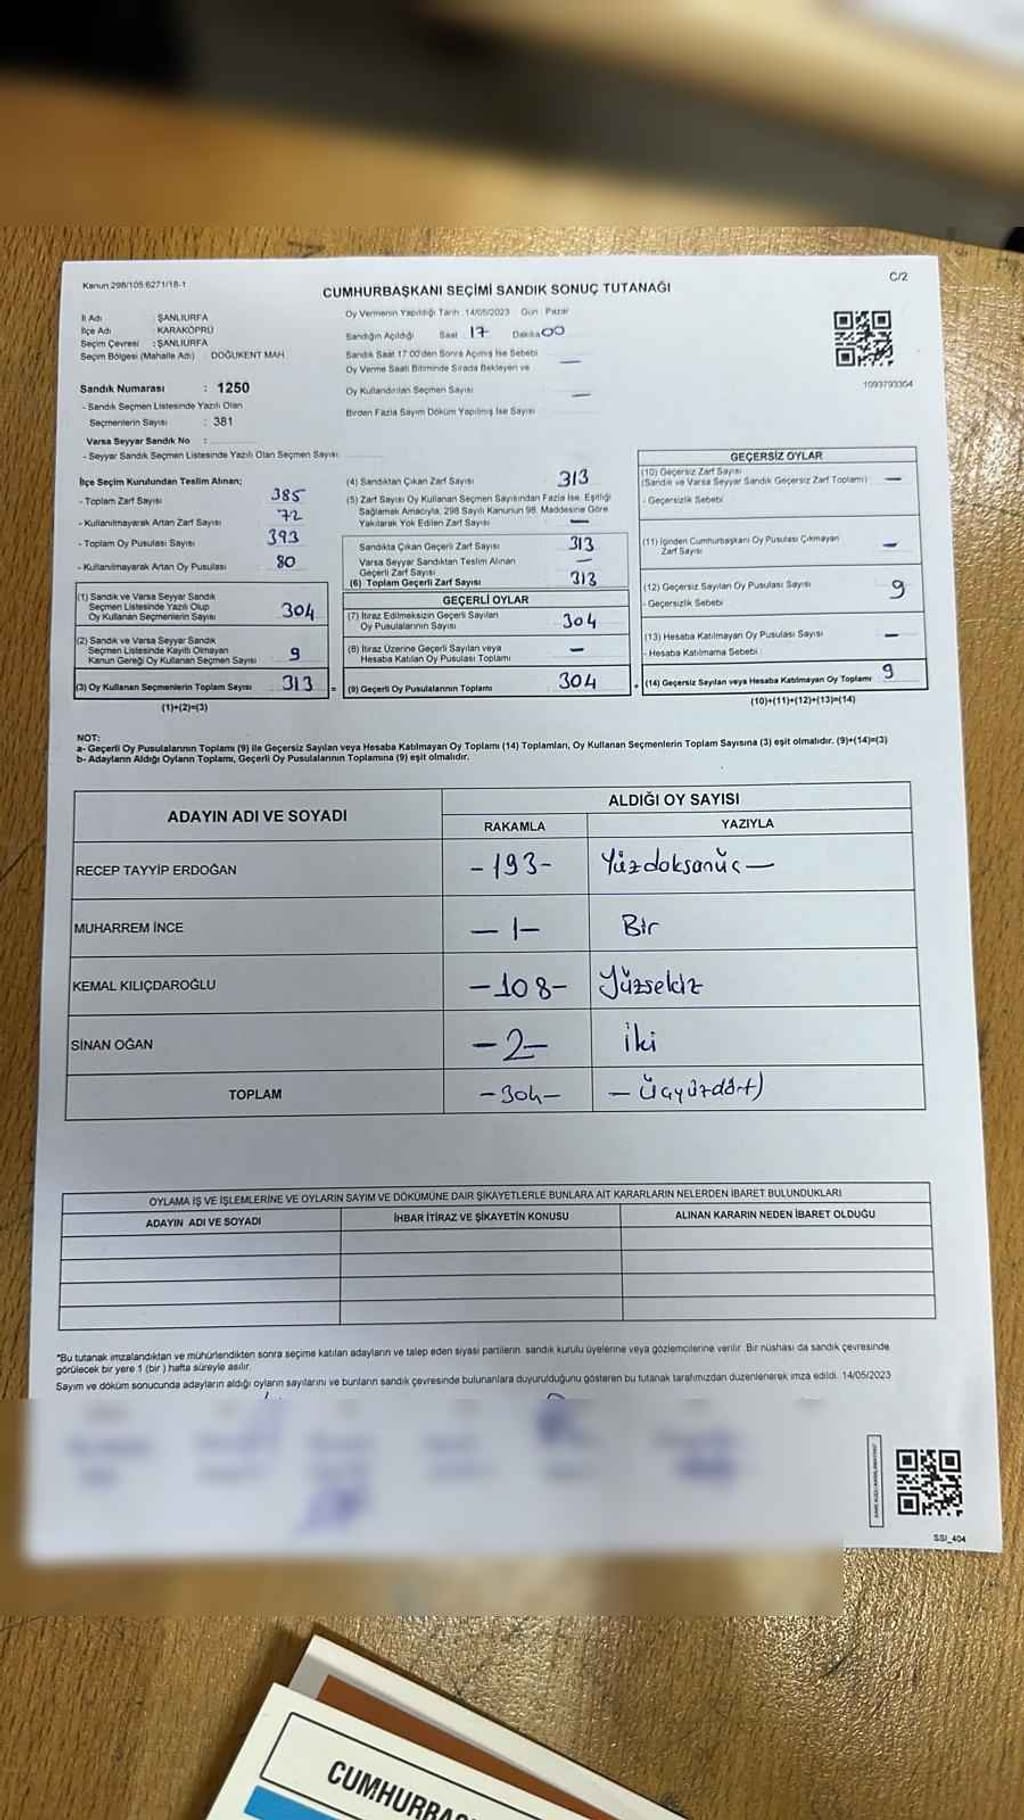 Kanun 298/105 6271/18-1
C/2
CUMHURBAŞKANI SEÇİMİ SANDIK SONUÇ TUTANAĞI
İl Adı : ŞANLIURFA
İlçe Adı : KARAKÖPRÜ
Seçim Çevresi : ŞANLIURFA
Seçim Bölgesi (Mahalle Adı) : DOĞUKENT MAH.
Sandık Numarası : 1250
- Sandık Seçmen Listesinde Yazılı Olan
Seçmenlerin Sayısı : 381
Varsa Seyyar Sandık No :
- Seyyar Sandık Seçmen Listesinde Yazılı Olan Seçmen Sayısı:
Oy Vermenin Yapıldığı Tarih :14/05/2023 Gün : Pazar
Sandığın Açıldığı Saat : 17 Dakika 00
Sandık Saat 17:00'den Sonra Açılmış İse Sebebi —
Oy Verme Saati Bitiminde Sırada Bekleyen ve
Oy Kullandırılan Seçmen Sayısı —
Birden Fazla Sayım Döküm Yapılmış İse Sayısı
1093793304
İlçe Seçim Kurulundan Teslim Alınan;
- Toplam Zarf Sayısı 385
- Kullanılmayarak Artan Zarf Sayısı 72
- Toplam Oy Pusulası Sayısı 393
- Kullanılmayarak Artan Oy Pusulası 80
(1) Sandık ve Varsa Seyyar Sandık
Seçmen Listesinde Yazılı Olup
Oy Kullanan Seçmenlerin Sayısı 304
(2) Sandık ve Varsa Seyyar Sandık
Seçmen Listesinde Kayıtlı Olmayan
Kanun Gereği Oy Kullanan Seçmen Sayısı 9
(3) Oy Kullanan Seçmenlerin Toplam Sayısı 313
(1)+(2)=(3)
(4) Sandıktan Çıkan Zarf Sayısı 313
(5) Zarf Sayısı Oy Kullanan Seçmen Sayısından Fazla İse, Eşitliği
Sağlamak Amacıyla, 298 Sayılı Kanunun 98. Maddesine Göre
Yakılarak Yok Edilen Zarf Sayısı —
Sandıkta Çıkan Geçerli Zarf Sayısı 313
Varsa Seyyar Sandıktan Teslim Alınan
Geçerli Zarf Sayısı —
(6) Toplam Geçerli Zarf Sayısı 313
GEÇERLİ OYLAR
(7) İtiraz Edilmeksizin Geçerli Sayılan
Oy Pusulalarının Sayısı 304
(8) İtiraz Üzerine Geçerli Sayılan veya
Hesaba Katılan Oy Pusulası Toplamı —
= (9) Geçerli Oy Pusulalarının Toplamı 304
GEÇERSİZ OYLAR
(10) Geçersiz Zarf Sayısı
(Sandık ve Varsa Seyyar Sandık Geçersiz Zarf Toplamı) —
- Geçersizlik Sebebi
(11) İçinden Cumhurbaşkanı Oy Pusulası Çıkmayan
Zarf Sayısı —
(12) Geçersiz Sayılan Oy Pusulası Sayısı 9
- Geçersizlik Sebebi
(13) Hesaba Katılmayan Oy Pusulası Sayısı —
- Hesaba Katılmama Sebebi
+ (14) Geçersiz Sayılan veya Hesaba Katılmayan Oy Toplamı 9
(10)+(11)+(12)+(13)=(14)
NOT:
a- Geçerli Oy Pusulalarının Toplamı (9) ile Geçersiz Sayılan veya Hesaba Katılmayan Oy Toplamı (14) Toplamları, Oy Kullanan Seçmenlerin Toplam Sayısına (3) eşit olmalıdır. (9)+(14)=(3)
b- Adayların Aldığı Oyların Toplamı, Geçerli Oy Pusulalarının Toplamına (9) eşit olmalıdır.
ADAYIN ADI VE SOYADI ALDIĞI OY SAYISI
RAKAMLA YAZIYLA
RECEP TAYYİP ERDOĞAN -193- Yüzdoksanüç—
MUHARREM İNCE —1— Bir
KEMAL KILIÇDAROĞLU —108— Yüzsekiz
SİNAN OĞAN —2— İki
TOPLAM —304— — Üçyüzdört)
OYLAMA İŞ VE İŞLEMLERİNE VE OYLARIN SAYIM VE DÖKÜMÜNE DAİR ŞİKAYETLERLE BUNLARA AİT KARARLARIN NELERDEN İBARET BULUNDUKLARI
ADAYIN ADI VE SOYADI İHBAR İTİRAZ VE ŞİKAYETİN KONUSU ALINAN KARARIN NEDEN İBARET OLDUĞU
*Bu tutanak imzalandıktan ve mühürlendikten sonra seçime katılan adayların ve talep eden siyasi partilerin, sandık kurulu üyelerine veya gözlemcilerine verilir. Bir nüshası da sandık çevresinde
görülecek bir yere 1 (bir ) hafta süreyle asılır.
Sayım ve döküm sonucunda adayların aldığı oyların sayılarını ve bunların sandık çevresinde bulunanlara duyurulduğunu gösteren bu tutanak tarafımızdan düzenlenerek imza edildi. 14/05/2023
SSI_404